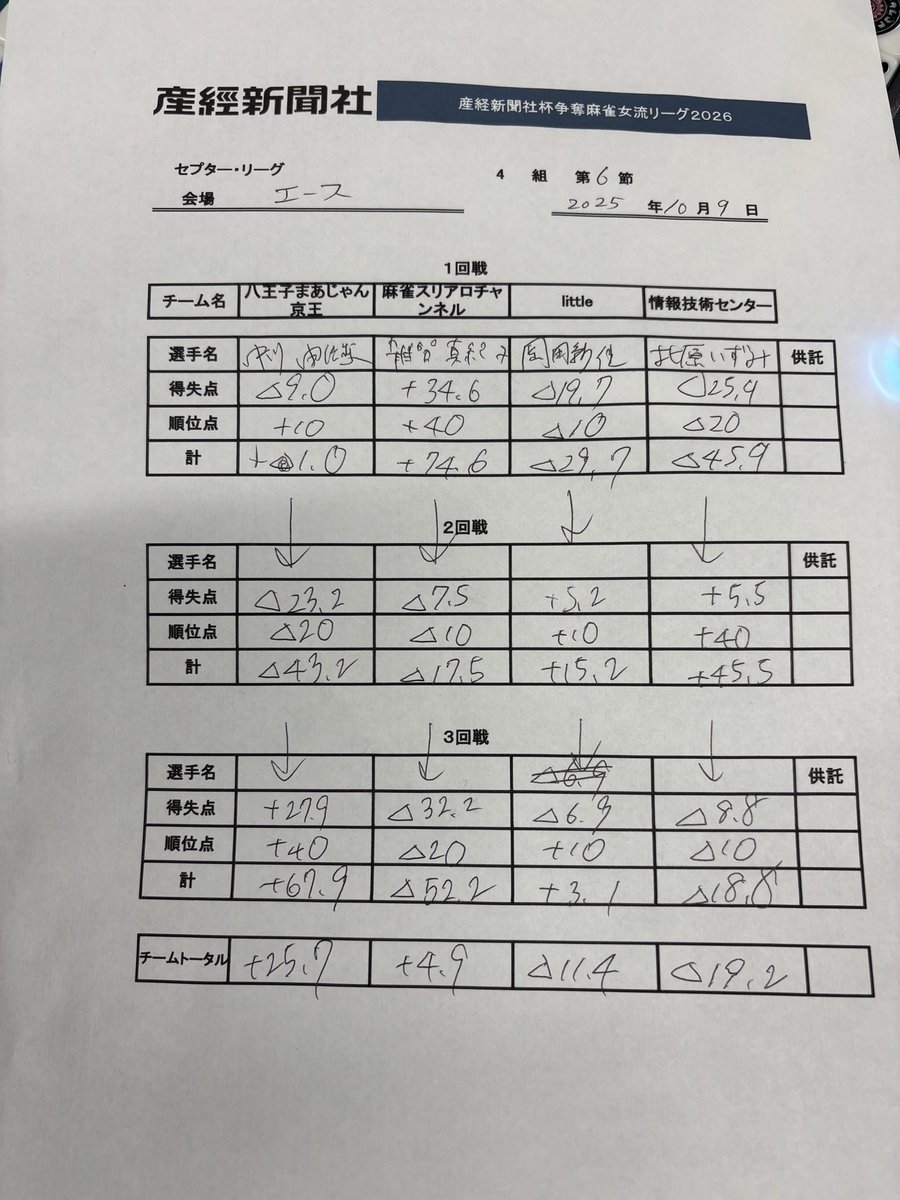 産經新聞社 産経新聞社杯争奪麻雀女流リーグ2026
セプター・リーグ 4 組 第6節
会場 エース 2025 年10月9日
1回戦
チーム名 八王子まあじゃん京王 麻雀スリアロチャンネル little 情報技術センター
選手名 真紀 いずみ 供託
得失点 △9.0 +34.6 △19.7 △25.9
順位点 +10 +40 △10 △20
計 +1.0 +74.6 △29.7 △45.9
2回戦
選手名 供託
得失点 △23.2 △7.5 +5.2 +5.5
順位点 △20 △10 +10 +40
計 △43.2 △17.5 +15.2 +45.5
3回戦
選手名 供託
得失点 +27.9 △32.2 △6.9 △8.8
順位点 +40 △20 +10 △10
計 +67.9 △52.2 +3.1 △18.8
チームトータル +25.7 +4.9 △11.4 △19.2